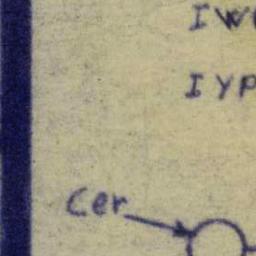 IW
IYP
Cer